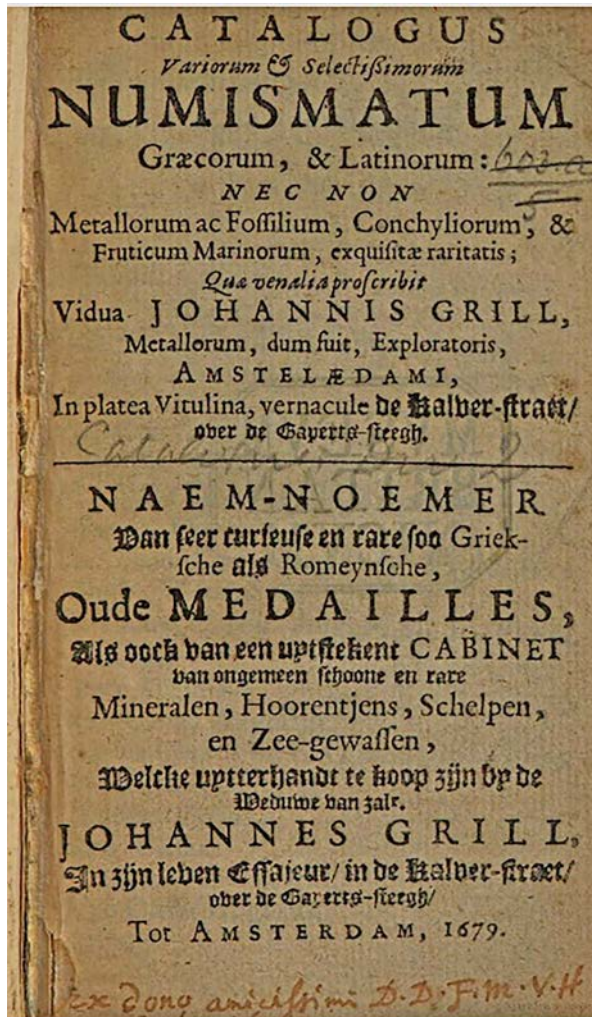 CATALOGUS
Variorum & Selectißimorum
NUMISMATUM
Græcorum, & Latinorum: 603.a
NEC NON
Metallorum ac Fossilium, Conchyliorum, &
Fruticum Marinorum, exquisitæ raritatis;
Quæ venalia proscribit
Vidua JOHANNIS GRILL,
Metallorum, dum fuit, Exploratoris,
AMSTELÆDAMI,
In platea Vitulina, vernacule de Kalver-straet/
over de Gaperts-steegh.
NAEM-NOEMER
Van seer curieuse en rare soo Griek-
sche als Romeynsche,
Oude MEDAILLES,
Als oock van een uytstekent CABINET
van ongemeen schoone en rare
Mineralen, Hoorentjens, Schelpen,
en Zee-gewassen,
Welcke uytterhandt te koop zijn by de
Weduwe van zalr.
JOHANNES GRILL,
In zijn leven Essajeur/ in de Kalver-straet/
over de Gaperts-steegh/
Tot AMSTERDAM, 1679.
Ex dono amicissimi D.D.F.M.V.H